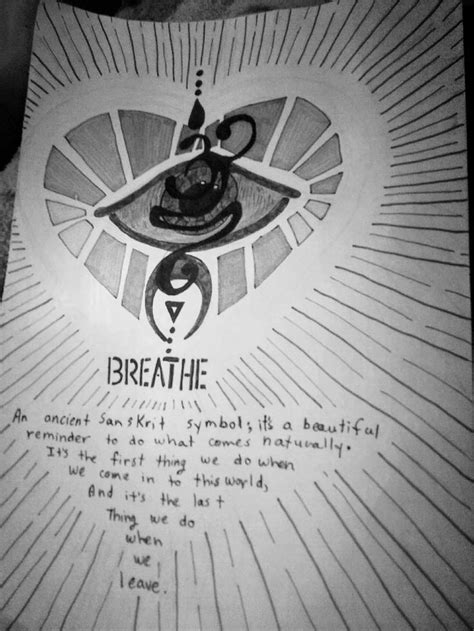 BREATHE
An ancient SansKrit symbol; it's a beautiful
reminder to do what comes naturally.
It's the first thing we do when
we come in to this world,
And it's the last
Thing we do
when
we
leave.